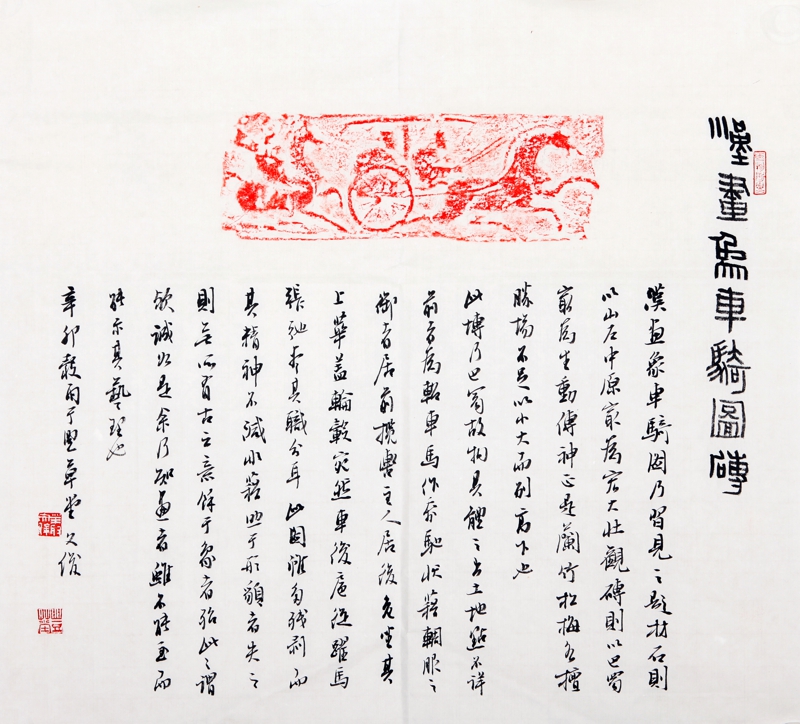 漢畫象車騎圖磚
漢畫象車騎圖乃習見之題材石則
以山左中原最為宏大壯觀磚則以巴蜀
最為生動傳神正是蘭竹松梅各擅
勝場不足以小大而列高下也
此磚乃巴蜀故物具體之出土地點不詳
前方為軺車馬作奔馳狀著朝服之
御者居前攬轡主人居後危坐其
上華蓋輪轂宛然車後扈從躍馬
張弛各具職分耳此圖雖多殘剥而
其精神不減于形貌者失之
則無所有古之意餘于象者殆此之謂
歟誠然是余乃知畫者雖不能至而
能示其藝理也
辛卯穀雨于草堂文俊